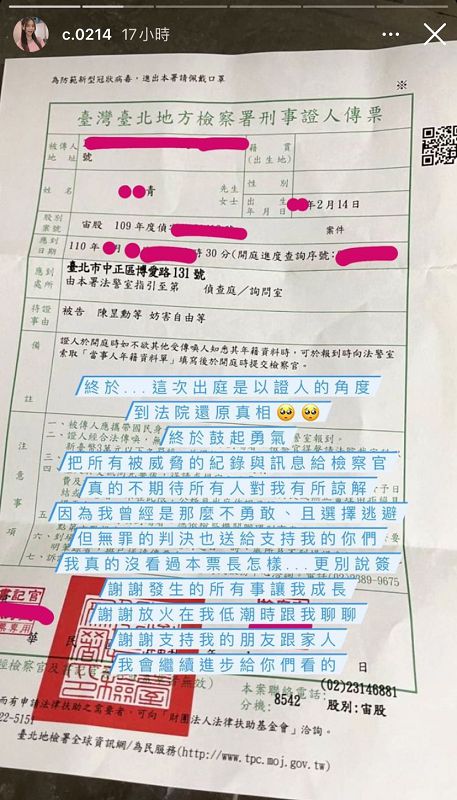 c.0214 17小時
為防範新型冠狀病毒，進出本署請佩戴口罩
※
臺灣臺北地方檢察署刑事證人傳票
被傳人
地址
號
籍貫
(出生地)
姓名
青
先生
女士
性別
出生
年月日
年2月14日
股別
案號
宙股 109年度偵
案件
應到
日期
110年
時30分(開庭進度查詢序號:
應到
處所
臺北市中正區博愛路131號
由本署法警室指引至第 偵查庭／詢問室
待證
事由
被告 陳昱勳等 妨害自由等
備
註
證人於開庭時如不欲其他受傳喚人知悉其年籍資料時，可於報到時向法警室
索取「當事人年籍資料單」填寫後於開庭時提交檢察官。
終於...這次出庭是以證人的角度
到法院還原真相🥺🥺
終於鼓起勇氣
把所有被威脅的紀錄與訊息給檢察官
真的不期待所有人對我有所諒解
因為我曾經是那麼不勇敢、且選擇逃避
但無罪的判決也送給支持我的你們
我真的沒看過本票長怎樣...更別說簽
謝謝發生的所有事讓我成長
謝謝放火在我低潮時跟我聊聊
謝謝支持我的朋友跟家人
我會繼續進步給你們看的
注意事項
一、被傳人應攜帶國民身
書記官
日
本案聯絡電話:(02)23146881
分機: 8542 股別:宙股
而有申請法律扶助之需要者，可向「財團法人法律扶助基金會」洽詢。
22-5151
臺北地檢署全球資訊網/為民服務(http://www.tpc.moj.gov.tw)